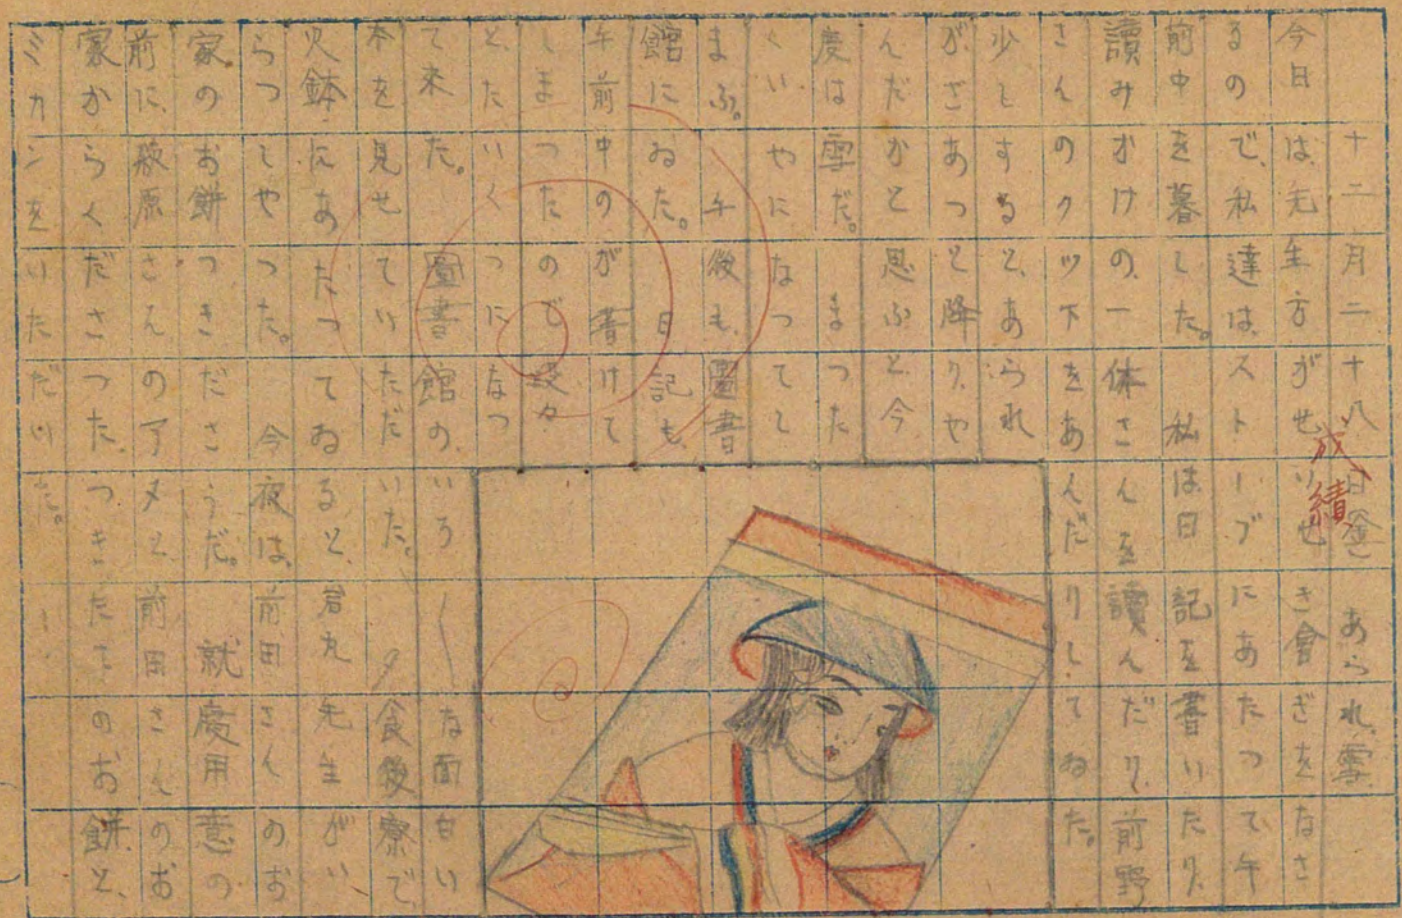 十二月二十八日(金)　あられ、雪
成績
今日は、先生方がせいせき會ぎをなさ
るので、私達は、ストーブにあたつて午
前中を暮した。　私は日記を書いたり、
讀みかけの、一休さんを讀んだり、前野
さんのクツ下をあんだりしてゐた。
少しすると、あられ
が、ざあつと降り、や
んだかと思ふと、今
度は雪だ。　まつた
くいやになつてし
まふ。　午後も、圖書
館にゐた。　日記も、
午前中のが書けて
しまつたので、段々
と、たいくつになつ
て來た。　圖書館の、いろ〱な面白い
本を見せていただいた。　夕食後寮で、
火鉢にあたつてゐると、君丸先生がい
らつしやつた。　今夜は、前田さんのお
家のお餅つきださうだ。　就寢用意の
前に、萩原さんのアメと、前田さんのお
家からくださつた、つきたてのお餅と、
ミカンをいただいた。